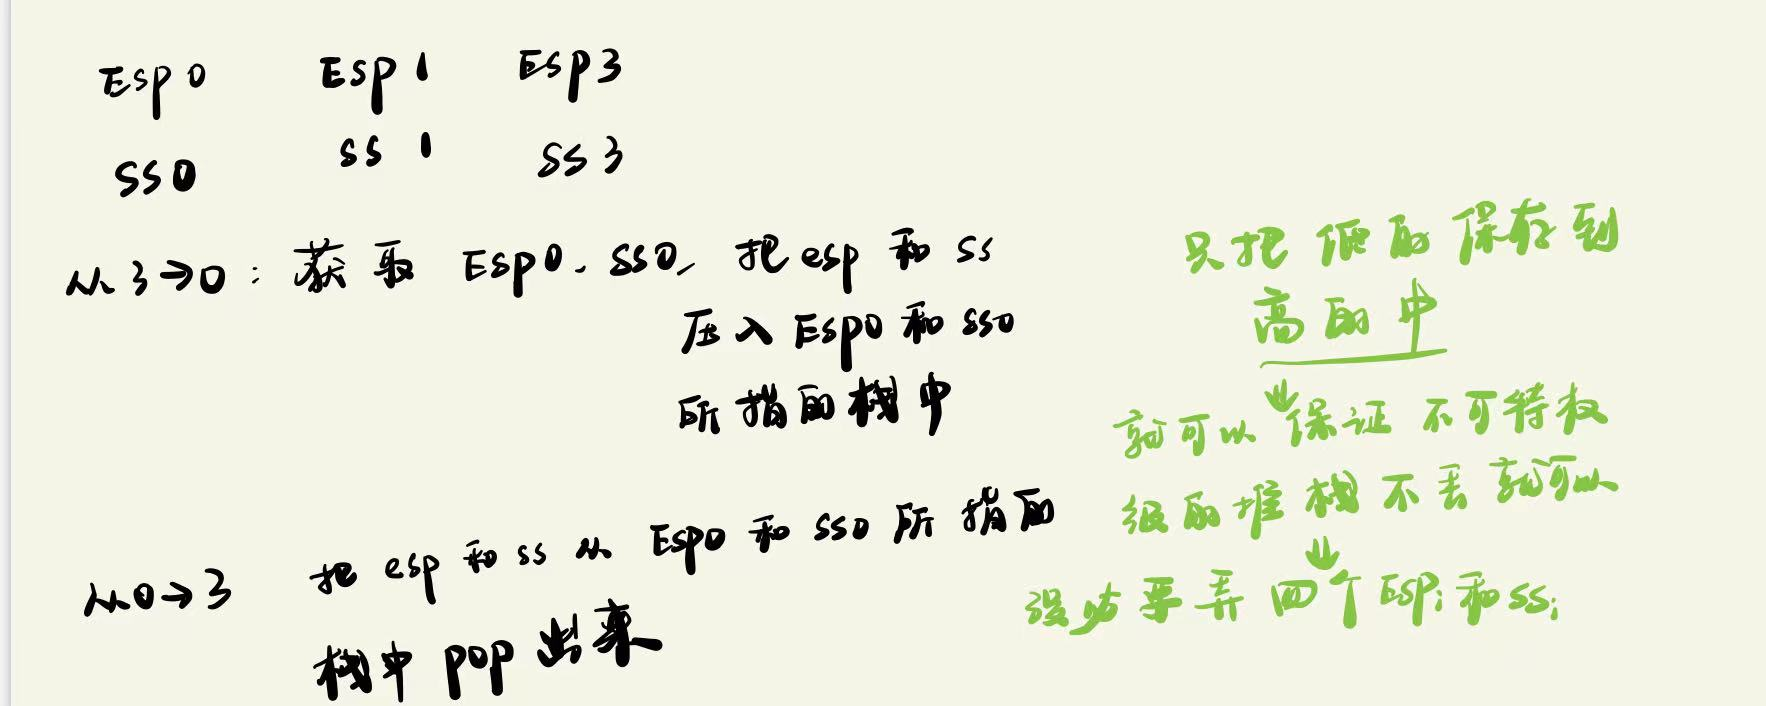 Esp0 Esp1 Esp3
SS0 SS1 SS3
从3→0: 获取 Esp0、SS0, 把esp和ss
压入Esp0和SS0
所指的栈中
从0→3 把esp和ss从Esp0和SS0所指的
栈中pop出来
只把低的保存到
高的中
就可以保证不可特权
级的堆栈不丢就可以
没必要弄四个ESPi和SSi